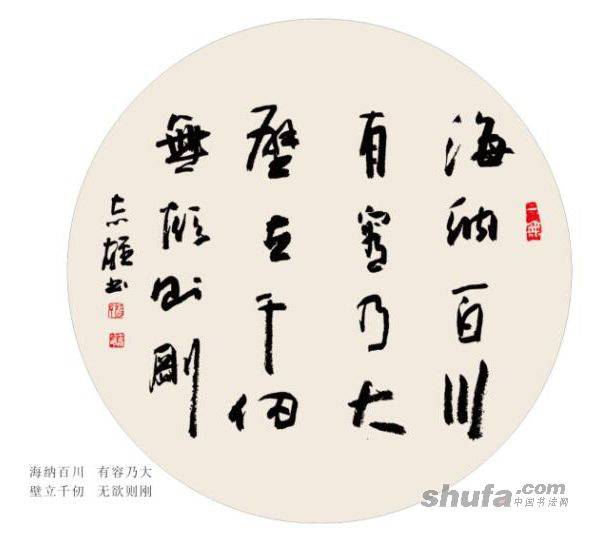 海納百川
有容乃大
壁立千仞
無欲則剛
海纳百川 有容乃大
壁立千仞 无欲则刚
shufa.com
中国书法网